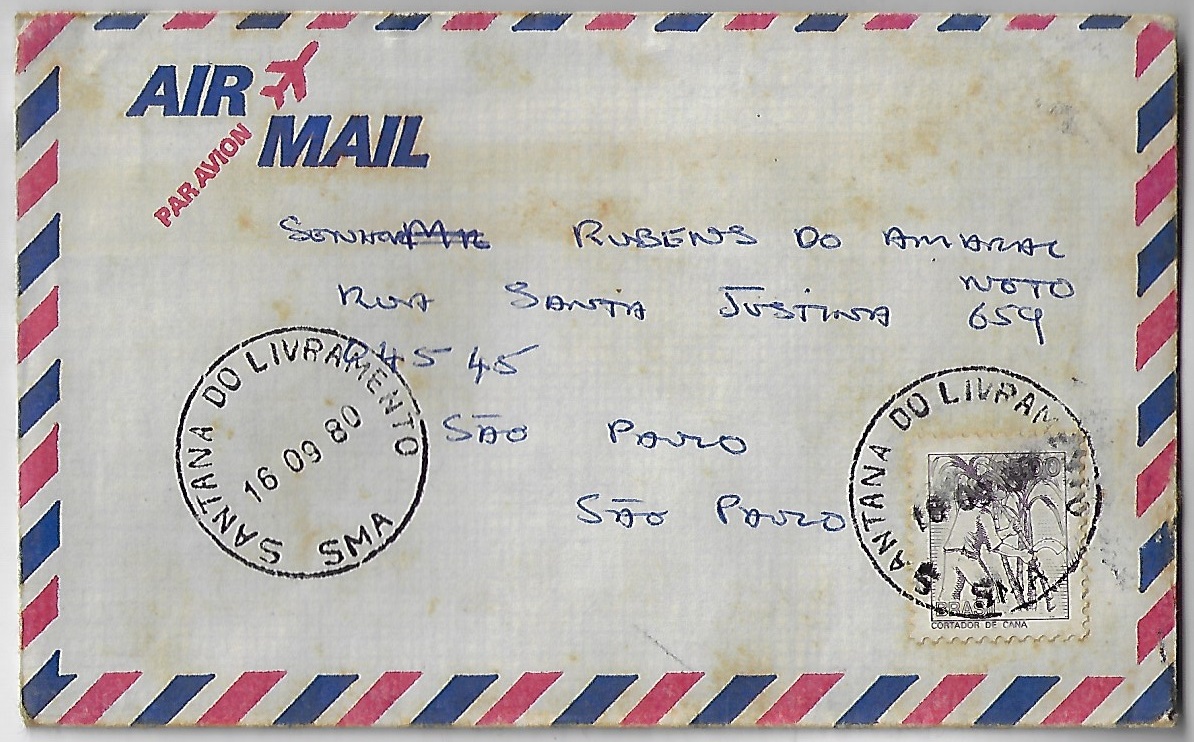 AIR
MAIL
PAR AVION
SENHOR RUBENS DO AMARAL
NETO
RUA SANTA JUSTINA 659
04545
SÃO PAULO
SÃO PAULO
SANTANA DO LIVRAMENTO
16 09 80
SMA
SANTANA DO LIVRAMENTO
SMA
BRASIL
CORTADOR DE CANA